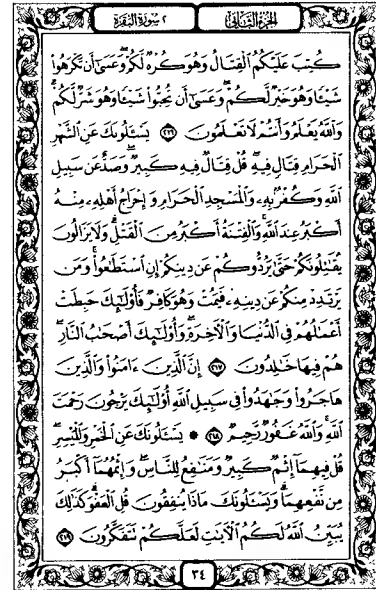 الجزء الثاني
٢ سورة البقرة
كُتِبَ عَلَيْكُمُ ٱلْقِتَالُ وَهُوَ كُرْهٌ لَّكُمْ وَعَسَىٰٓ أَن تَكْرَهُوا۟
شَيْـًٔا وَهُوَ خَيْرٌ لَّكُمْ وَعَسَىٰٓ أَن تُحِبُّوا۟ شَيْـًٔا وَهُوَ شَرٌّ لَّكُمْ
وَٱللَّهُ يَعْلَمُ وَأَنتُمْ لَا تَعْلَمُونَ ٢١٦ يَسْـَٔلُونَكَ عَنِ ٱلشَّهْرِ
ٱلْحَرَامِ قِتَالٍ فِيهِ قُلْ قِتَالٌ فِيهِ كَبِيرٌ وَصَدٌّ عَن سَبِيلِ
ٱللَّهِ وَكُفْرٌۢ بِهِۦ وَٱلْمَسْجِدِ ٱلْحَرَامِ وَإِخْرَاجُ أَهْلِهِۦ مِنْهُ
أَكْبَرُ عِندَ ٱللَّهِ وَٱلْفِتْنَةُ أَكْبَرُ مِنَ ٱلْقَتْلِ وَلَا يَزَالُونَ
يُقَـٰتِلُونَكُمْ حَتَّىٰ يَرُدُّوكُمْ عَن دِينِكُمْ إِنِ ٱسْتَطَـٰعُوا۟ وَمَن
يَرْتَدِدْ مِنكُمْ عَن دِينِهِۦ فَيَمُتْ وَهُوَ كَافِرٌ فَأُو۟لَـٰٓئِكَ حَبِطَتْ
أَعْمَـٰلُهُمْ فِى ٱلدُّنْيَا وَٱلْـَٔاخِرَةِ وَأُو۟لَـٰٓئِكَ أَصْحَـٰبُ ٱلنَّارِ
هُمْ فِيهَا خَـٰلِدُونَ ٢١٧ إِنَّ ٱلَّذِينَ ءَامَنُوا۟ وَٱلَّذِينَ
هَاجَرُوا۟ وَجَـٰهَدُوا۟ فِى سَبِيلِ ٱللَّهِ أُو۟لَـٰٓئِكَ يَرْجُونَ رَحْمَتَ
ٱللَّهِ وَٱللَّهُ غَفُورٌ رَّحِيمٌ ٢١٨ * يَسْـَٔلُونَكَ عَنِ ٱلْخَمْرِ وَٱلْمَيْسِرِ
قُلْ فِيهِمَآ إِثْمٌ كَبِيرٌ وَمَنَـٰفِعُ لِلنَّاسِ وَإِثْمُهُمَآ أَكْبَرُ
مِن نَّفْعِهِمَا وَيَسْـَٔلُونَكَ مَاذَا يُنفِقُونَ قُلِ ٱلْعَفْوَ كَذَٰلِكَ
يُبَيِّنُ ٱللَّهُ لَكُمُ ٱلْـَٔايَـٰتِ لَعَلَّكُمْ تَتَفَكَّرُونَ ٢١٩
٣٤